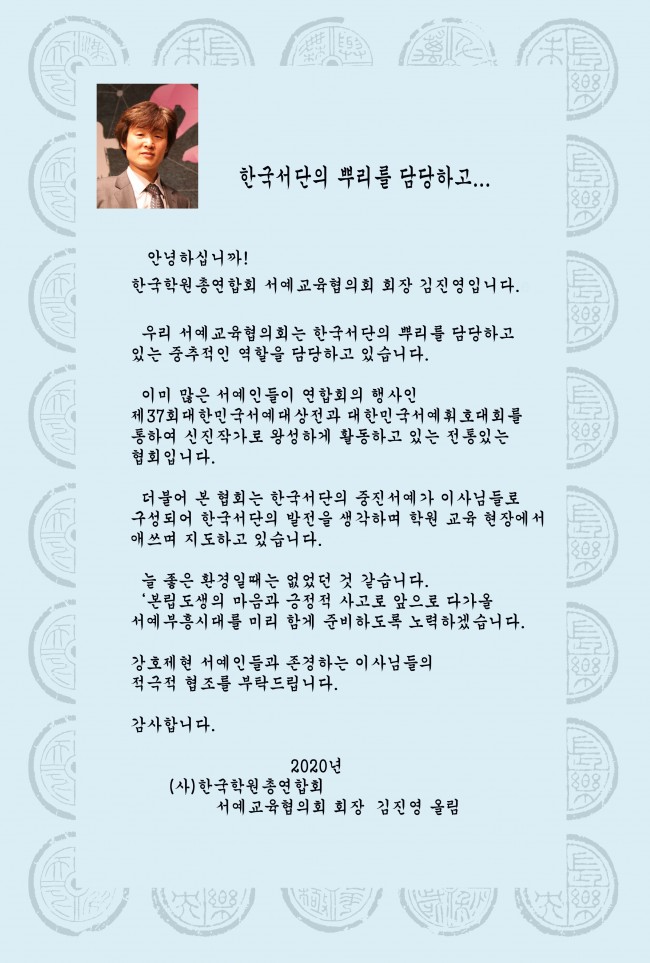 한국서단의 뿌리를 담당하고...
안녕하십니까!
한국학원총연합회 서예교육협의회 회장 김진영입니다.
우리 서예교육협의회는 한국서단의 뿌리를 담당하고
있는 중추적인 역할을 담당하고 있습니다.
이미 많은 서예인들이 연합회의 행사인
제37회대한민국서예대상전과 대한민국서예휘호대회를
통하여 신진작가로 왕성하게 활동하고 있는 전통있는
협회입니다.
더불어 본 협회는 한국서단의 중진서예가 이사님들로
구성되어 한국서단의 발전을 생각하며 학원 교육 현장에서
애쓰며 지도하고 있습니다.
늘 좋은 환경일때는 없었던 것 같습니다.
‘본립도생의 마음과 긍정적 사고로 앞으로 다가올
서예부흥시대를 미리 함게 준비하도록 노력하겠습니다.
강호제현 서예인들과 존경하는 이사님들의
적극적 협조를 부탁드립니다.
감사합니다.
2020년
(사)한국학원총연합회
서예교육협의회 회장 김진영 올림